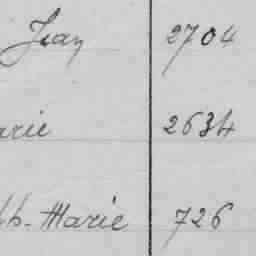 Jean 2704
arie 2634
ph-Marie 726